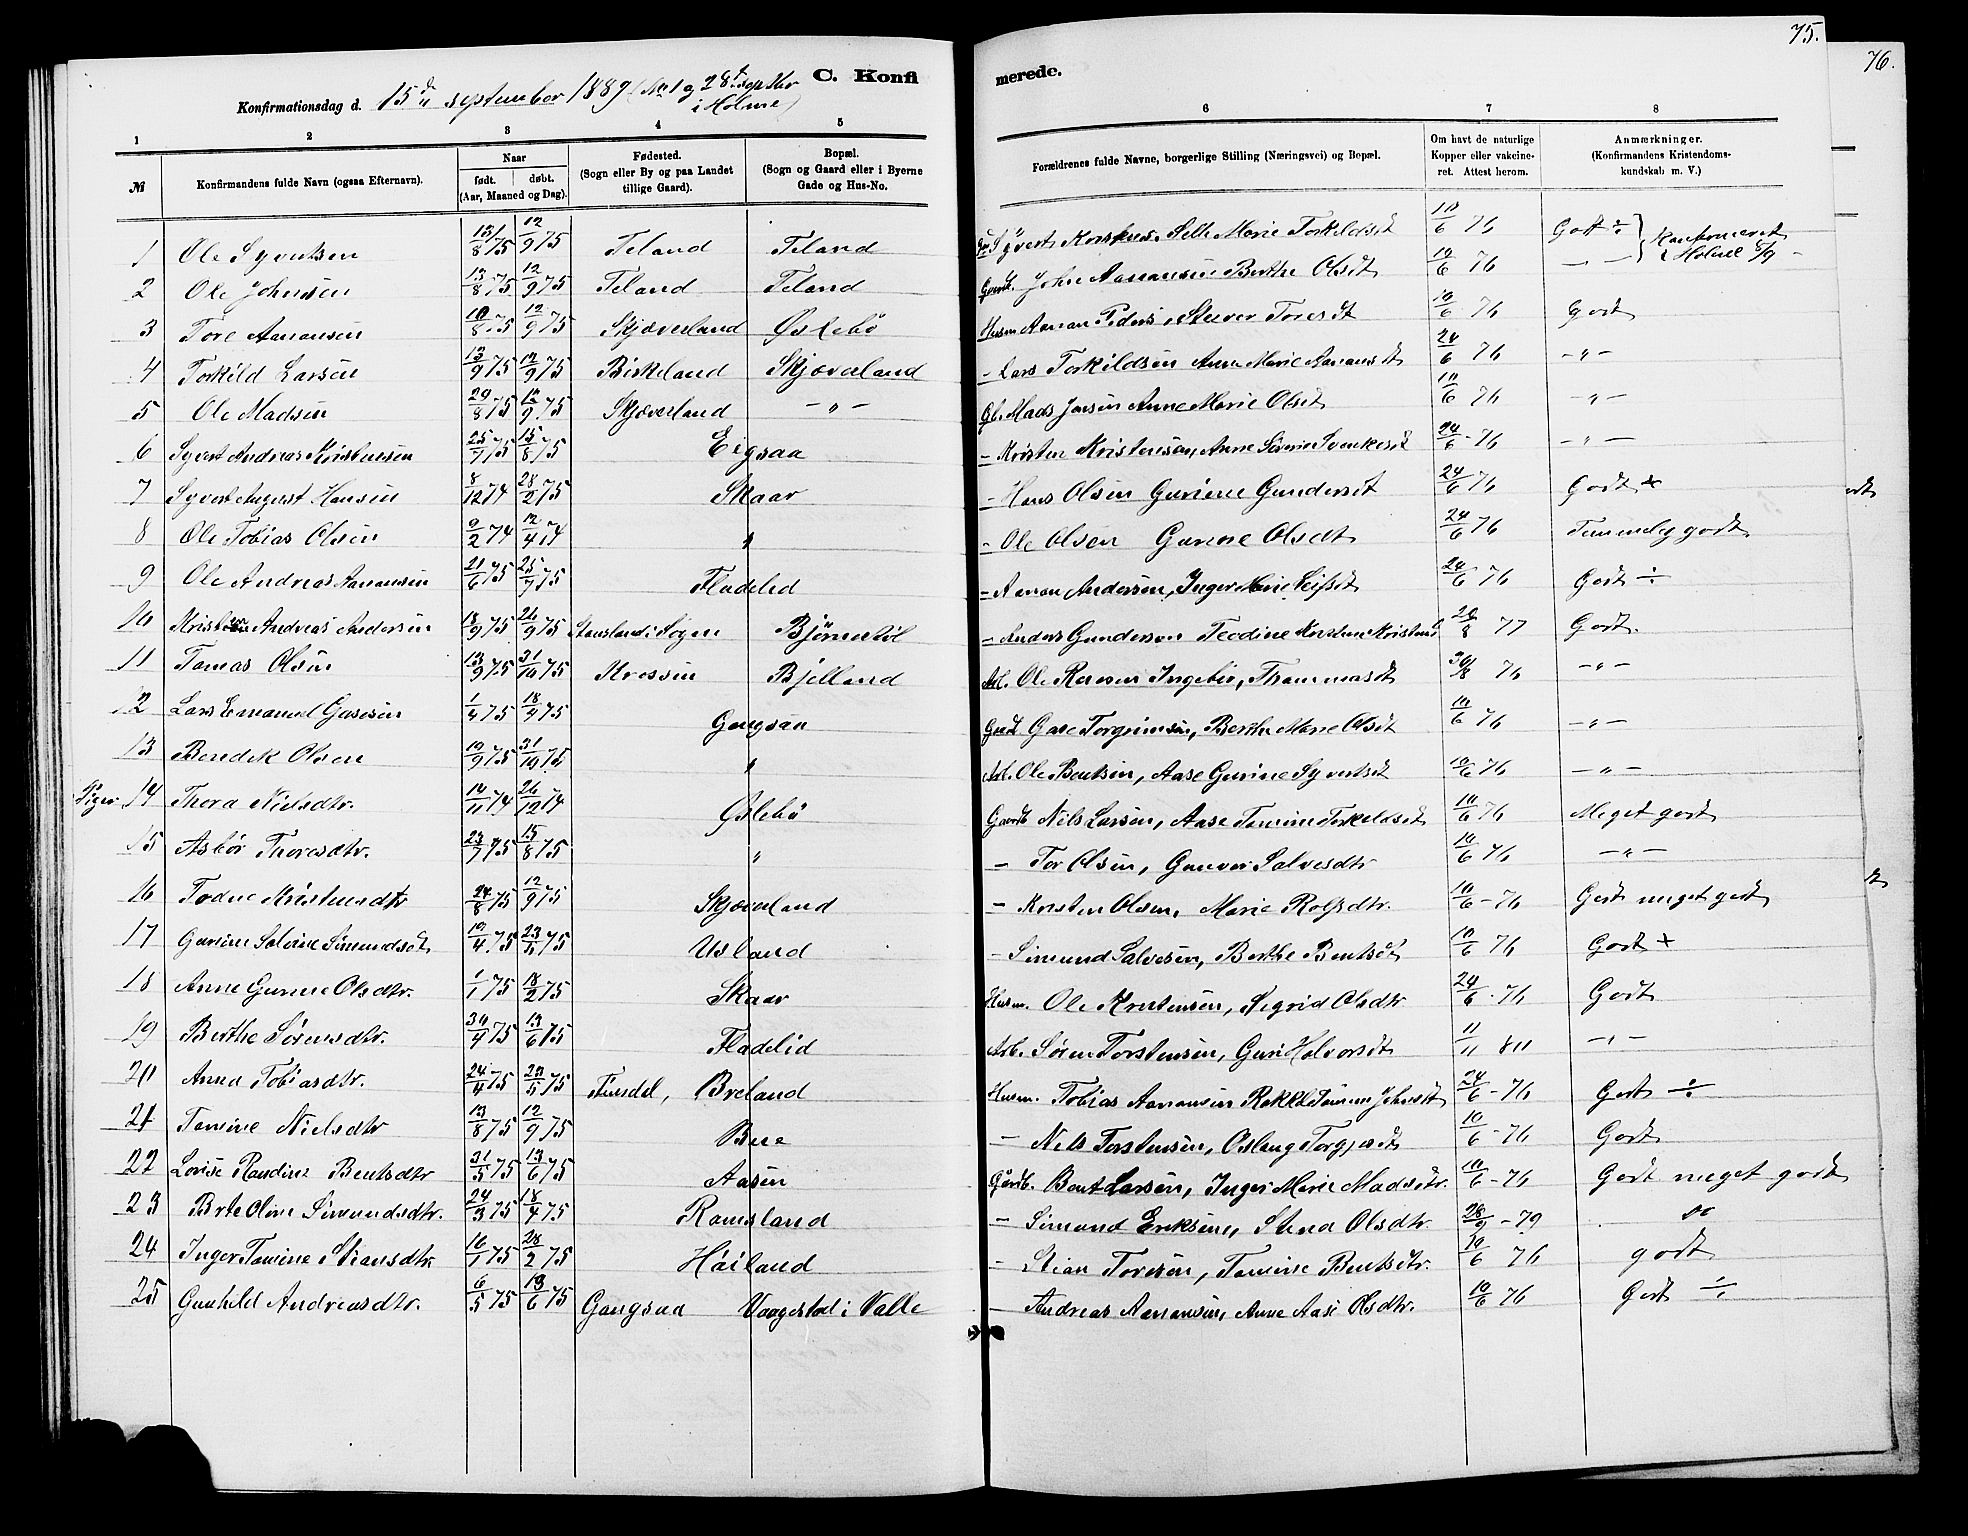 75.
76.
C. Konfirmerede.
Konfirmationsdag d. 15de september 1889 (No 1 og 2 8de septbr
i Holme)
1 2 3 4 5 6 7 8
No
Konfirmandens fulde Navn (ogsaa Efternavn).
Naar
født. døbt.
(Aar, Maaned og Dag).
Fødested.
(Sogn eller By og paa Landet
tillige Gaard).
Bopæl.
(Sogn og Gaard eller i Byerne
Gade og Hus-No.
Forældrenes fulde Navne, borgerlige Stilling (Næringsvei) og Bopæl.
Om havt de naturlige
Kopper eller vakcine-
ret. Attest herom.
Anmærkninger.
(Konfirmandens Kristendoms-
kundskab m. V.)
1 Ole Syvertsen 12/9 75 Teland Teland Marie Torkildsdt 10/6 76 Godt ÷
i Holme 8/9
2 Ole Johnsen 13/8 75 12/9 75 Teland Teland Gaardb. John Aanansen Berthe Olsdt 10/6 76 — —
3 Tore Aanansen 10/8 75 12/9 75 Skjæverland Øslebö Husm Aanan Toresdt 10/6 76 Godt
4 Torkild Larsen 12/9 75 Birkeland Skjæverland — Lars Torkildsen Anne Marie Aanansdt 24/6 76 — " —
5 Ole Madsen 29/8 75 12/9 75 Skjæverland — " — Mads Jensen Anne Marie Olsdt 10/6 76 — " —
6 Syvert Andreas Kristensen 25/7 75 15/8 75 Eigsaa — Kristen Kristensen, Anne 24/6 - 76 — " —
7 Syvert August Hansen 8/12 74 28/2 75 Skaar — Hans Olsen Gurine Gundersdt 24/6 76 Godt ×
8 Ole Tobias Olsen 9/2 74 12/4 74 " — Ole Olsen Gurine Olsdt 24/6 76 Temmelig godt
9 Ole Andreas Aanansen 21/6 75 25/7 75 Fladelid — Aanan Andersen, Inger Marie 24/6 76 Godt ÷
10 Andreas Andersen 18/9 75 26/9 75 Stausland i Sogne Bjørneböl — Anders Gundersen Teodine 8 77 Godt.
11 Tomas Olsen 13/9 75 31/10 75 Krossen Bjelland Arb. Ole 76 — " —
12 Lars Emanuel Gasesen 1/4 75 18/4 75 Gangsaa Gase Torgrimsen, Berthe Marie Olsdt 10/6 76 — " —
13 Bendik Olsen 19/9 75 31/10 75 " Arb. Ole Bentsen, Aase Gurine Syvertsdt 10/6 76 — " —
Piger
14 Thora Nielsdtr. 14/11 74 26/12 74 Øslebö Gaardb Nils Larsen, Aase Tomine Torkeldsdt 10/6 76 Meget godt
15 Asbör Thoresdtr. 23/7 75 15/8 75 " — Tor Olsen, Gunvor Salvesdtr 10/6 76 — " —
16 Todne Kristensdtr 24/8 75 12/9 75 Skjæverland — Kristen Olsen, Marie Rolfsdtr. 10/6 - 76 Godt meget godt
17 Gurine Salvine Simundsdt 19/4 75 75 Usland — Simund Salvesen, Berthe Bentsdt 10/6 76 Godt ×
18 Anne Gurine Olsdtr. 1/1 75 18/2 75 Skaar Husm. Ole Kristensen, Sigrid Olsdtr 24/6 - 76 Godt
19 Berthe Sörensdtr. 30/4 75 13/6 75 Fladelid Arb. Sören Torstensen, Guri Holvorsdt 11/11 80 — " —
20 Anna Tobiasdtr. 24/4 75 23/5 75 Finsdal, Breland Husm. Tobias Aanansen Johnsdt 24/6 - 76 Godt ÷
21 Tomine Nielsdtr 13/8 75 12/9 75 Bue — Nils Torstensen, Oslaug Torgjusdt 10/6 - 76 Godt
22 Lovise Randine Bentsdtr 31/5 75 13/6 75 Aasen Gårdb. Bent Larsen, Inger Marie Madsdtr. 10/6 - 76 Godt meget godt
23 Birte Oline Simundsdtr. 24/3 75 18/4 75 Ramsland — Simund Eriksen, Stina Olsdtr 28/9 - 79
24 Inger Tomine Stiansdtr 16/1 75 28/2 75 Höiland — Stian Toresen, Tomine Bentsdtr. 10/6 76 godt
25 Gunhild Andreasdtr. 6/5 75 13/6 75 Gangsaa Vaagestad i Valle — Andreas Aanansen, Anne Aase Olsdtr. 10/6 76 Godt ÷